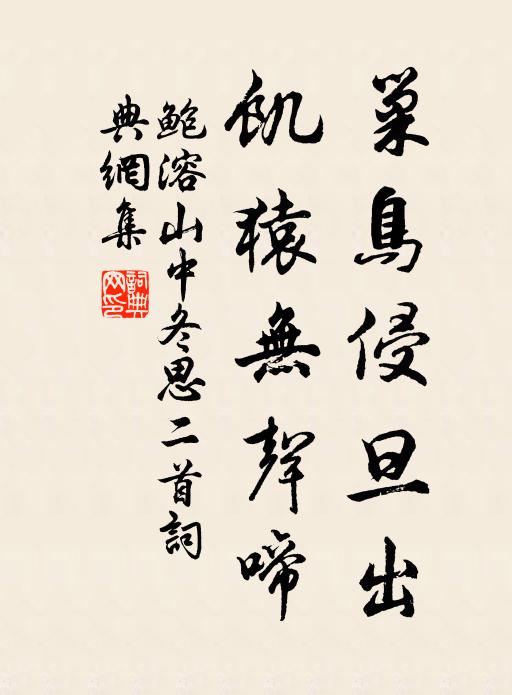 巢鳥侵旦出
飢猿無聲啼
鮑溶山中冬思二首詞
典網集
詞典
网印